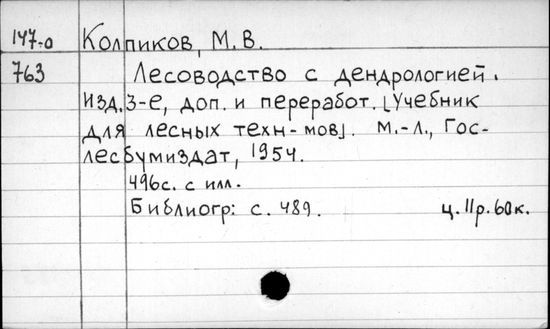 147-о Колпиков, М. В.
763 Лесоводство с дендрологией.
Изд. 3-е, доп. и переработ. [Учебник
для лесных техн-мов]. М.-Л., Гос-
лесбумиздат, 1954.
496с. с илл.
Библиогр: с. 489. ц. 11р. 60к.